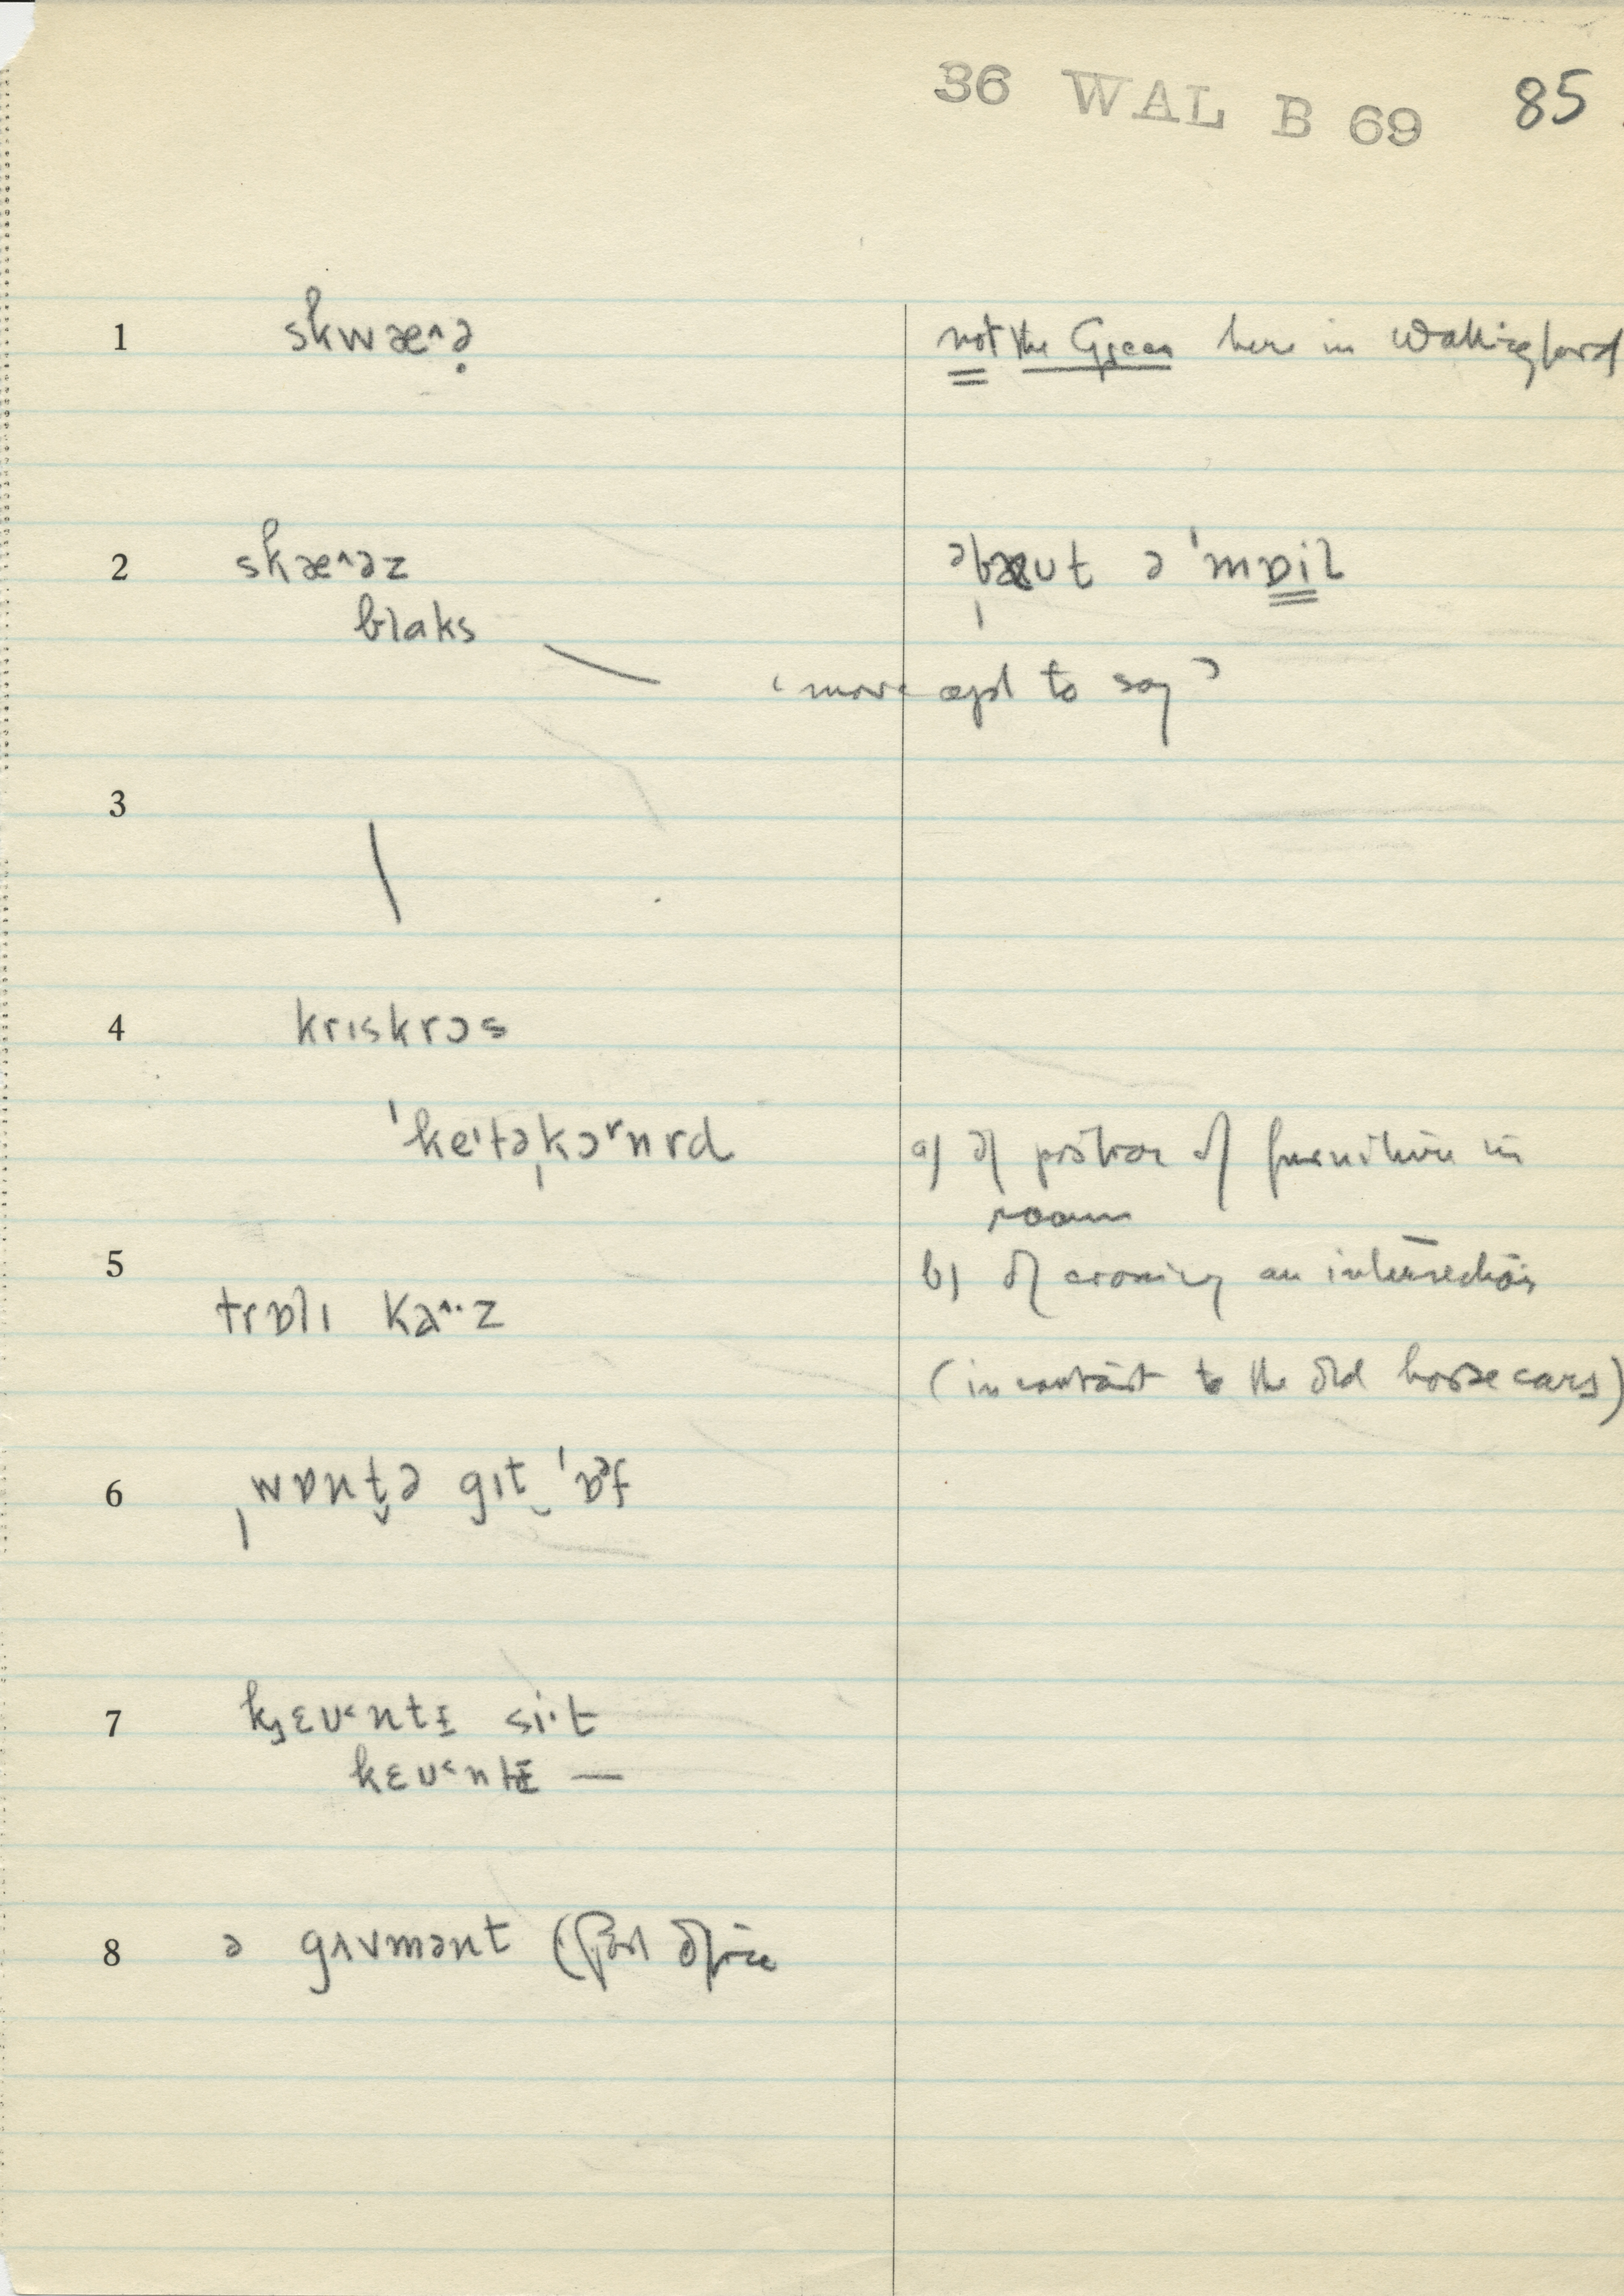 36 WAL B 69 85
1 skwæ^ə̣ not the Green here in Wallingford
2 skæ^əz əbæut ə ˈmɒil
blaks
‘more apt to say’
3
4 krɪskrɔs
ˈkeˈtəˌkɔʳnrd a) of position of furniture in
room
5 b) of crossing an intersection
trɒlɪ ka^·z
(in contrast to the old horse cars)
6 ˌwɒnt̬ə gɪt‿ˈɒᵊf
7 kɛʊ˂ntɪ si·t
kɛʊ˂ntɪ —
8 ə gʌvmənt (Post Office